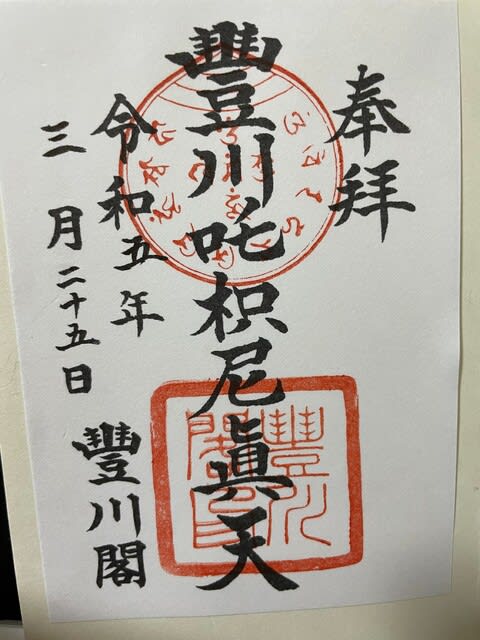 奉拝
豐川吒枳尼眞天
令和五年
三月二十五日
豐川閣